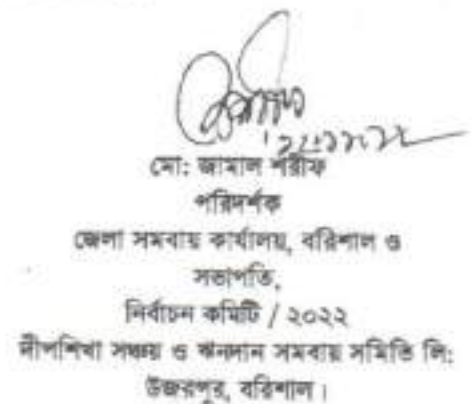 মো: জামাল শরীফ
পরিদর্শক
জেলা সমবায় কার্যালয়, বরিশাল ও
সভাপতি,
নির্বাচন কমিটি / ২০২২
দীপশিখা সঞ্চয় ও ঋনদান সমবায় সমিতি লি:
উজিরপুর, বরিশাল।